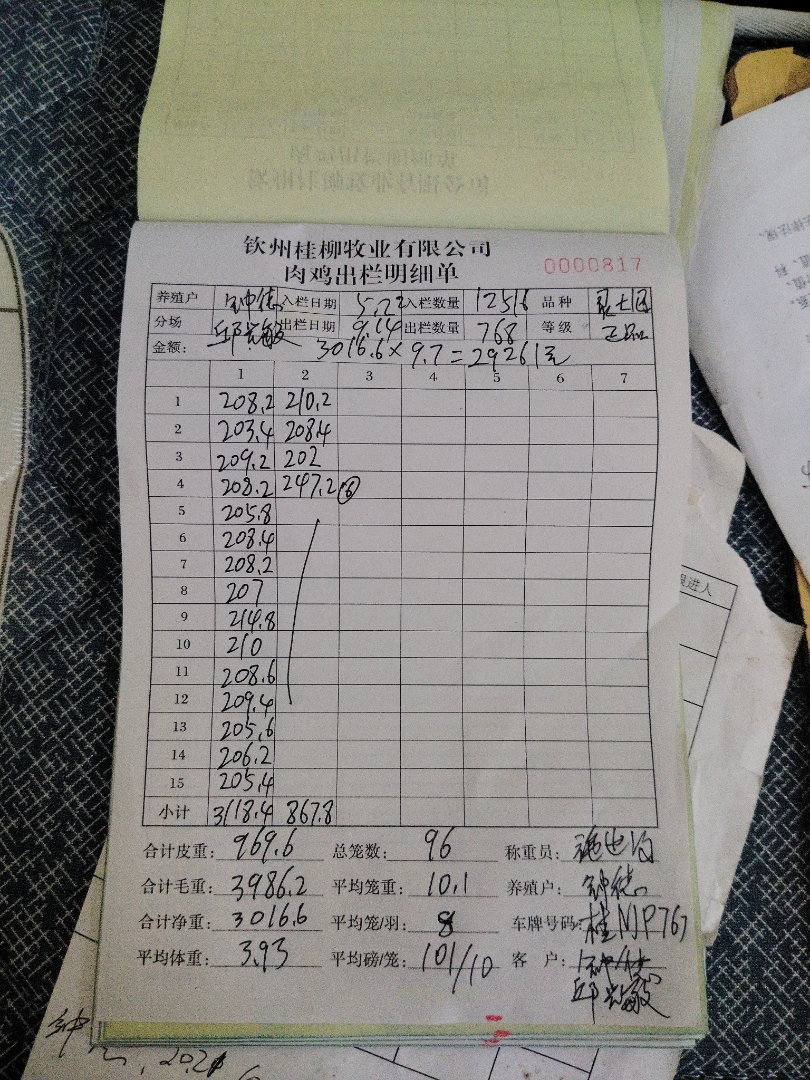 钦州桂柳牧业有限公司
肉鸡出栏明细单
0000817
养殖户 钟德 入栏日期 5.22 入栏数量 12516 品种
分场 邱崇敏 出栏日期 9.14 出栏数量 768 等级 正品
金额: 3016.6×9.7=29261元
1 2 3 4 5 6 7
1 208.2 210.2
2 203.4 208.4
3 209.2 202
4 208.2 247.2 ⑥
5 205.8
6 208.4
7 208.2
8 207
9 214.8
10 210
11 208.6
12 209.4
13 205.6
14 206.2
15 205.4
小计 3118.4 867.8
合计皮重: 969.6 总笼数: 96 称重员:
合计毛重: 3986.2 平均笼重: 10.1 养殖户: 钟德
合计净重: 3016.6 平均笼/羽: 8 车牌号码: 桂NJP767
平均体重: 3.93 平均磅/笼: 101/10 客 户: 钟德
邱崇敏
跟进人